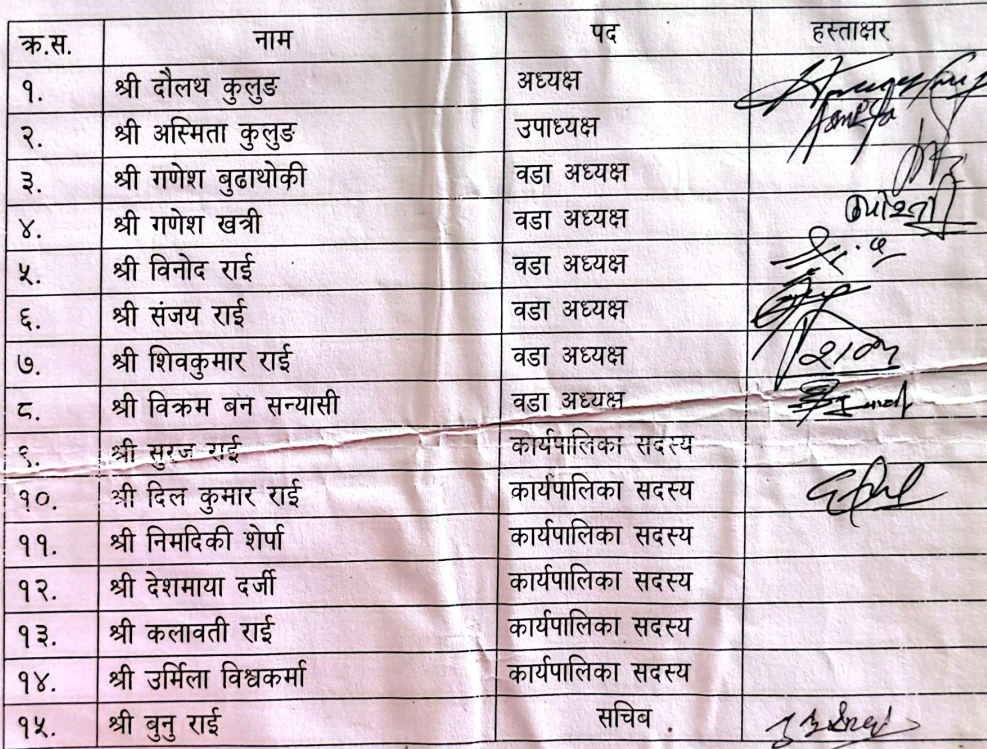 क्र.स. नाम पद हस्ताक्षर
१. श्री दौलथ कुलुङ अध्यक्ष
२. श्री अस्मिता कुलुङ उपाध्यक्ष
३. श्री गणेश बुढाथोकी वडा अध्यक्ष
४. श्री गणेश खत्री वडा अध्यक्ष
५. श्री विनोद राई वडा अध्यक्ष
६. श्री संजय राई वडा अध्यक्ष
७. श्री शिवकुमार राई वडा अध्यक्ष
८. श्री विक्रम बन सन्यासी वडा अध्यक्ष
९. श्री सुरज राई कार्यपालिका सदस्य
१०. श्री दिल कुमार राई कार्यपालिका सदस्य
११. श्री निमदिकी शेर्पा कार्यपालिका सदस्य
१२. श्री देशमाया दर्जी कार्यपालिका सदस्य
१३. श्री कलावती राई कार्यपालिका सदस्य
१४. श्री उर्मिला विश्वकर्मा कार्यपालिका सदस्य
१५. श्री बुनु राई सचिब